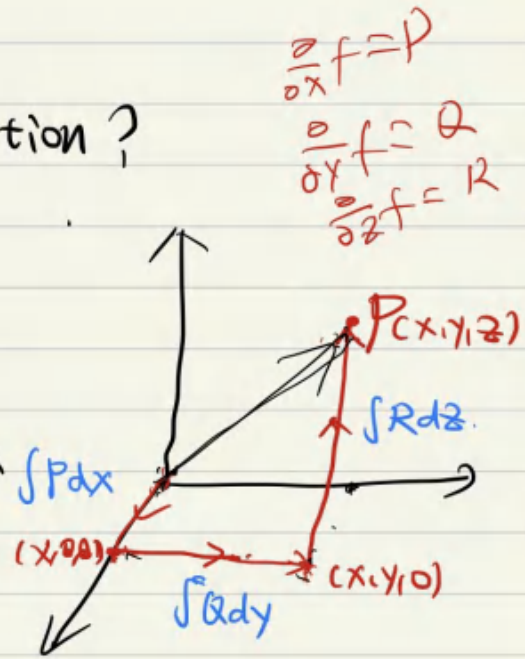 ∂/∂x f = P
tion ?
∂/∂y f = Q
∂/∂z f = R
P(x,y,z)
∫Rdz.
∫Pdx
(x,0,0)
(x,y,0)
∫Qdy